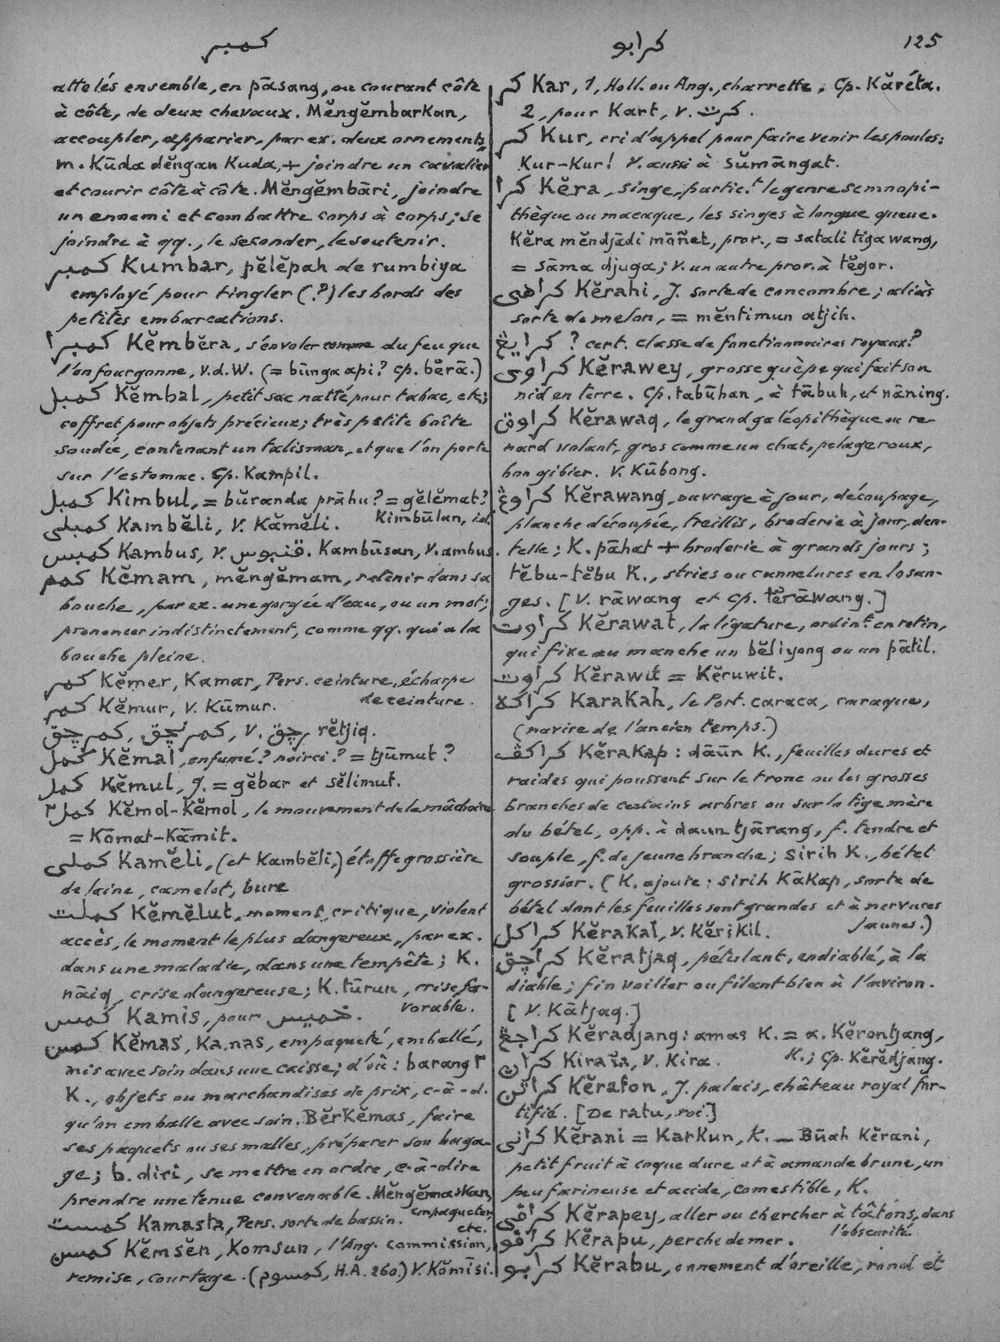 كمبر
كرابو
125
attelés ensemble, en pāsang, ou courant côte
à côte, de deux chevaux. Mĕngĕmbarkan,
accoupler, apparier, par ex. deux ornements,
m. Kūda dĕngan Kuda, + joindre un cavalier
et courir côte à côte. Mĕngĕmbāri, joindre
un ennemi et combattre corps à corps; se
joindre à qq., le seconder, le soutenir.
كمبر Kumbar, pĕlĕpah de rumbiya
employé pour tingler (?) les bords des
petites embarcations.
كمبرا Kĕmbĕra, s'envoler comme du feu que
l'on fourgonne, v.d.W. (= būnga api? cp. bĕrā.)
كمبل Kĕmbal, petit sac natté pour tabac, etc;
coffret pour objets précieux; très petite boîte
soudée, contenant un talisman, et que l'on porte
sur l'estomac. Cp. Kampil.
كمبل Kimbul, = būranda prāhu? = gĕlĕmat?
Kimbūlan, id.
كمبلي Kambĕli, V. Kāmĕli.
كمبس Kambus, v. قنبوس. Kambūsan, V. ambus.
كمم Kĕmam, mĕngĕmam, retenir dans sa
bouche, par ex. une gorgée d'eau, ou un mot;
prononcer indistinctement, comme qq. qui a la
bouche pleine.
كمر Kĕmer, Kamar, Pers. ceinture, écharpe
de ceinture.
كمر Kĕmur, V. Kūmur.
كمرچق, كمرنچق, V. رچق, rĕtjiq.
كمل Kĕmal, enfumé? noirci? = tjūmut?
كمل Kĕmul, J. = gĕbar et sĕlimut.
كمل٢ Kĕmol-Kĕmol, le mouvement de la mâchoire
= Kōmat-Kāmit.
كملي Kamĕli, (et Kambĕli,) étoffe grossière
de laine, camelot, bure
كملت Kĕmĕlut, moment critique, violent
accès, le moment le plus dangereux, par ex.
dans une maladie, dans une tempête; K.
nāiq, crise dangereuse; K. tūrun, crise fa-
vorable.
كمس Kamis, pour خميس.
كمس Kĕmas, Ka.nas, empaqueté, emballé,
mis avec soin dans une caisse; d'où: barang٢
K., objets ou marchandises de prix, c-à-d.
qu'on emballe avec soin. Bĕrkĕmas, faire
ses paquets ou ses malles, préparer son baga-
ge; b. diri, se mettre en ordre, c-à-dire
prendre une tenue convenable. Mĕngĕmaskan,
empaqueter,
etc.
كمست Kamasta, Pers. sorte de bassin.
كمسن Kĕmsĕn, Komsun, l'Ang. commission,
remise, courtage. (كمسوم, H.A. 260.) V. Kŏmīsi.
كر Kar, 1, Holl. ou Ang., charrette; Cp. Kăréta.
2, pour Kart, v. كرت.
كر Kur, cri d'appel pour faire venir les poules:
Kur-Kur! V. aussi à sŭmāngat.
كرا Kĕra, singe, partic.t le genre semnopi-
thèque ou macaque, les singes à longue queue.
Kĕra mĕndjādi māñet, pror., = satali tiga wang,
= sāma djuga; v. un autre pror. à tĕgor.
كراهي Kĕrahi, J. sorte de concombre; aliàs
sorte de melon, = mĕntimun atjih.
كرايڠ ? cert. classe de fonctionnaires royaux?
كراوي Kĕrawey, grosse guêpe qui fait son
nid en terre. Cp. tabūhan, à tābuh, et nāning.
كراوق Kĕrawaq, le grand galéopithèque ou re-
nard volant, gros comme un chat, pelage roux,
bon gibier. V. Kūbong.
كراوڠ Kĕrawang, ouvrage à jour, découpage,
planche découpée, treillis, broderie à jour, den-
telle; K. pāhat + broderie à grands jours;
tĕbu-tĕbu K., stries ou cannelures en losan-
ges. [V. rāwang et cp. tĕrāwang.]
كراوت Kĕrawat, la ligature, ordin.t en rotin,
qui fixe au manche un bĕliyong ou un pātil.
كراوت Kĕrawit = Kĕruwit.
كراكه Karakah, le Port. caraca, caraque,
(navire de l'ancien temps.)
كراكڤ Kĕrakap: dāūn K., feuilles dures et
raides qui poussent sur le tronc ou les grosses
branches de certains arbres ou sur la tige mère
du bétel, opp. à daun tjārang, f. tendre et
souple, f. de jeune branche; sirih K., bétel
grossier. (K. ajoute: sirih Kākap, sorte de
bétel dont les feuilles sont grandes et à nervures
jaunes.)
كراكل Kĕrakal, v. Kĕrikil.
كراچق Kĕratjaq, pétulant, endiablé, à la
diable; fin voilier ou filant bien à l'aviron.
[V. Kātjaq.]
كراجڠ Kĕradjang: amas K. = a. Kĕrontjang,
K.; Cp. Kĕrĕdjang.
كران Kirana, V. Kira.
كراتن Kĕraton, J. palais, château royal for-
tifié. [De ratu, roi.]
كراني Kĕrani = Karkun, K. _ Būah Kĕrani,
petit fruit à coque dure et à amande brune, un
peu farineuse et acide, comestible, K.
كراڤي Kĕrapey, aller ou chercher à tâtons, dans
l'obscurité.
كراڤو Kĕrapu, perche de mer.
كرابو Kĕrabu, ornement d'oreille, rond et